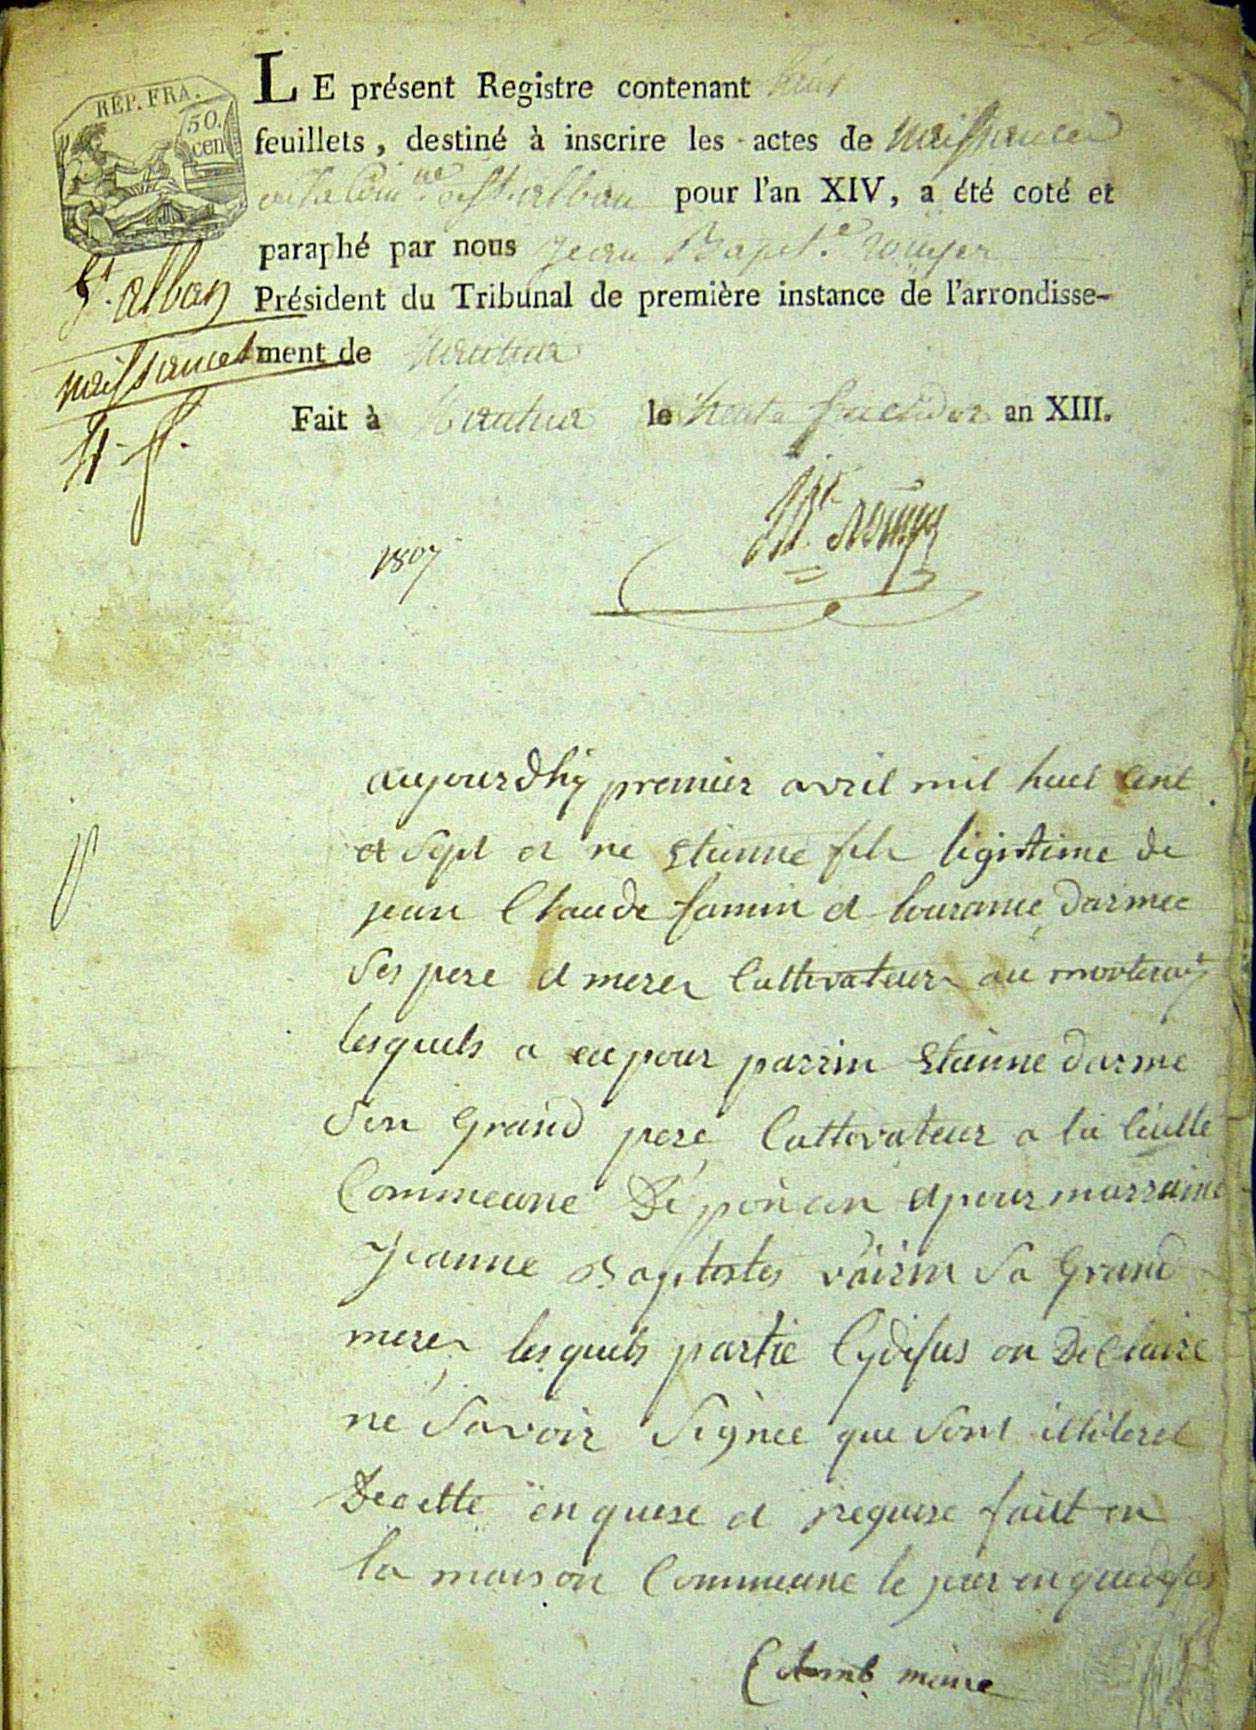 REP. FRA.
50.
cen
LE présent Registre contenant huit
feuillets, destiné à inscrire les actes de naissances
de la Com.ne de St. alban pour l'an XIV, a été coté et
paraphé par nous Jean Bapt.e rouyer
Président du Tribunal de première instance de l'arrondisse-
ment de
Fait à le trente fructidor an XIII.
St. alban
naissances
1807
aujourdhy premier avril mil huit cent
et sept et ne etienne fils ligitime de
jean Claude famin et lourance darmee
Ses pere et merer Cultivateur au
lesquels a eu pour parrin etienne darme
Son Grand pere Cultivateur a la
Commeune De et pour marraine
Jeanne Baptistes Sa Grand
merer lesquels partie Cydesus on Declaire
ne Savoir Signee que sont illiteree
De cette enquise et requise fait en
la maison Commeune le jour en quedesus
maire